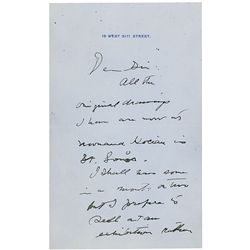 19 WEST 31ST STREET.
Dear Sir:
All the
original drawings
I have are now at
in
St. Louis.
I shall have some
in a month or two
but I prefer to
sell at an
exhibition rather